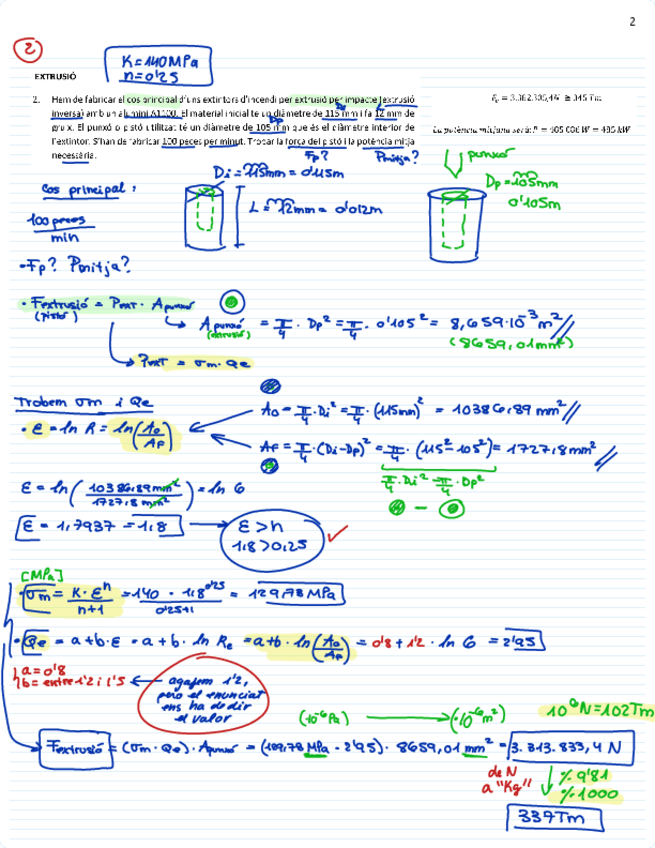 2
2
K=140MPa
n=0'25
EXTRUSIÓ
2. Hem de fabricar el cos principal d'uns extintors d'incendi per extrusió per impacte (extrusió
inversa) amb un alumini A1100. El material inicial te un diàmetre de 115 mm i fa 12 mm de
gruix. El punxó o pistó utilitzat té un diàmetre de 105 mm que és el diàmetre interior de
l'extintor. S'han de fabricar 100 peces per minut. Trobar la força del pistó i la potència mitja
necessària.
Di
Dp
Fp?
Pmitja?
La potència mitjana serà: P =
punxó
Dp=105mm
0'105m
Cos principal:
Di=115mm=0'115m
L=12mm=0'012m
100 peces
min
•Fp? Pmitja?
• Fextrusió = Pext · Apunxó
(pistó)
Apunxó = π/4 · Dp² = π/4 · 0'105² = 8,659·10⁻³ m²
(extrusió)
(8659,01mm²)
Pext = σm · Qe
Trobem σm i Qe
• ε = ln R = ln(Ao/AF)
Ao = π/4 · Di² = π/4 · (115mm)² = 10386,89 mm²
AF = π/4 · (Di-Dp)² = π/4 · (115²-105²) = 1727,8 mm²
π/4 · Di² - π/4 · Dp²
-
ε = ln(10386,89mm²/1727,8mm²) = ln 6
ε = 1,7937 = 1,8
ε > n
1,8 > 0,25
[MPa]
• σm = K·εⁿ/n+1 = 140 · 1,8^0'25/0'25+1 = 129,78 MPa
• Qe = a+b·ε = a+b · ln Re = a+b · ln(Ao/AF) = 0'8+1'2 · ln 6 = 2'95
a=0'8
b= entre 1'2 i 1'5
agafem 1'2,
però el enunciat
ens ha de dir
el valor
(10⁻⁶Pa)
(·10⁻⁶m²)
10⁶N=102Tm
Fextrusió = (σm · Qe) · Apunxó = (129,78 MPa · 2'95) · 8659,01 mm² = 3.313.833,4 N
de N
a "Kg"
% 9'81
% 1000
337Tm